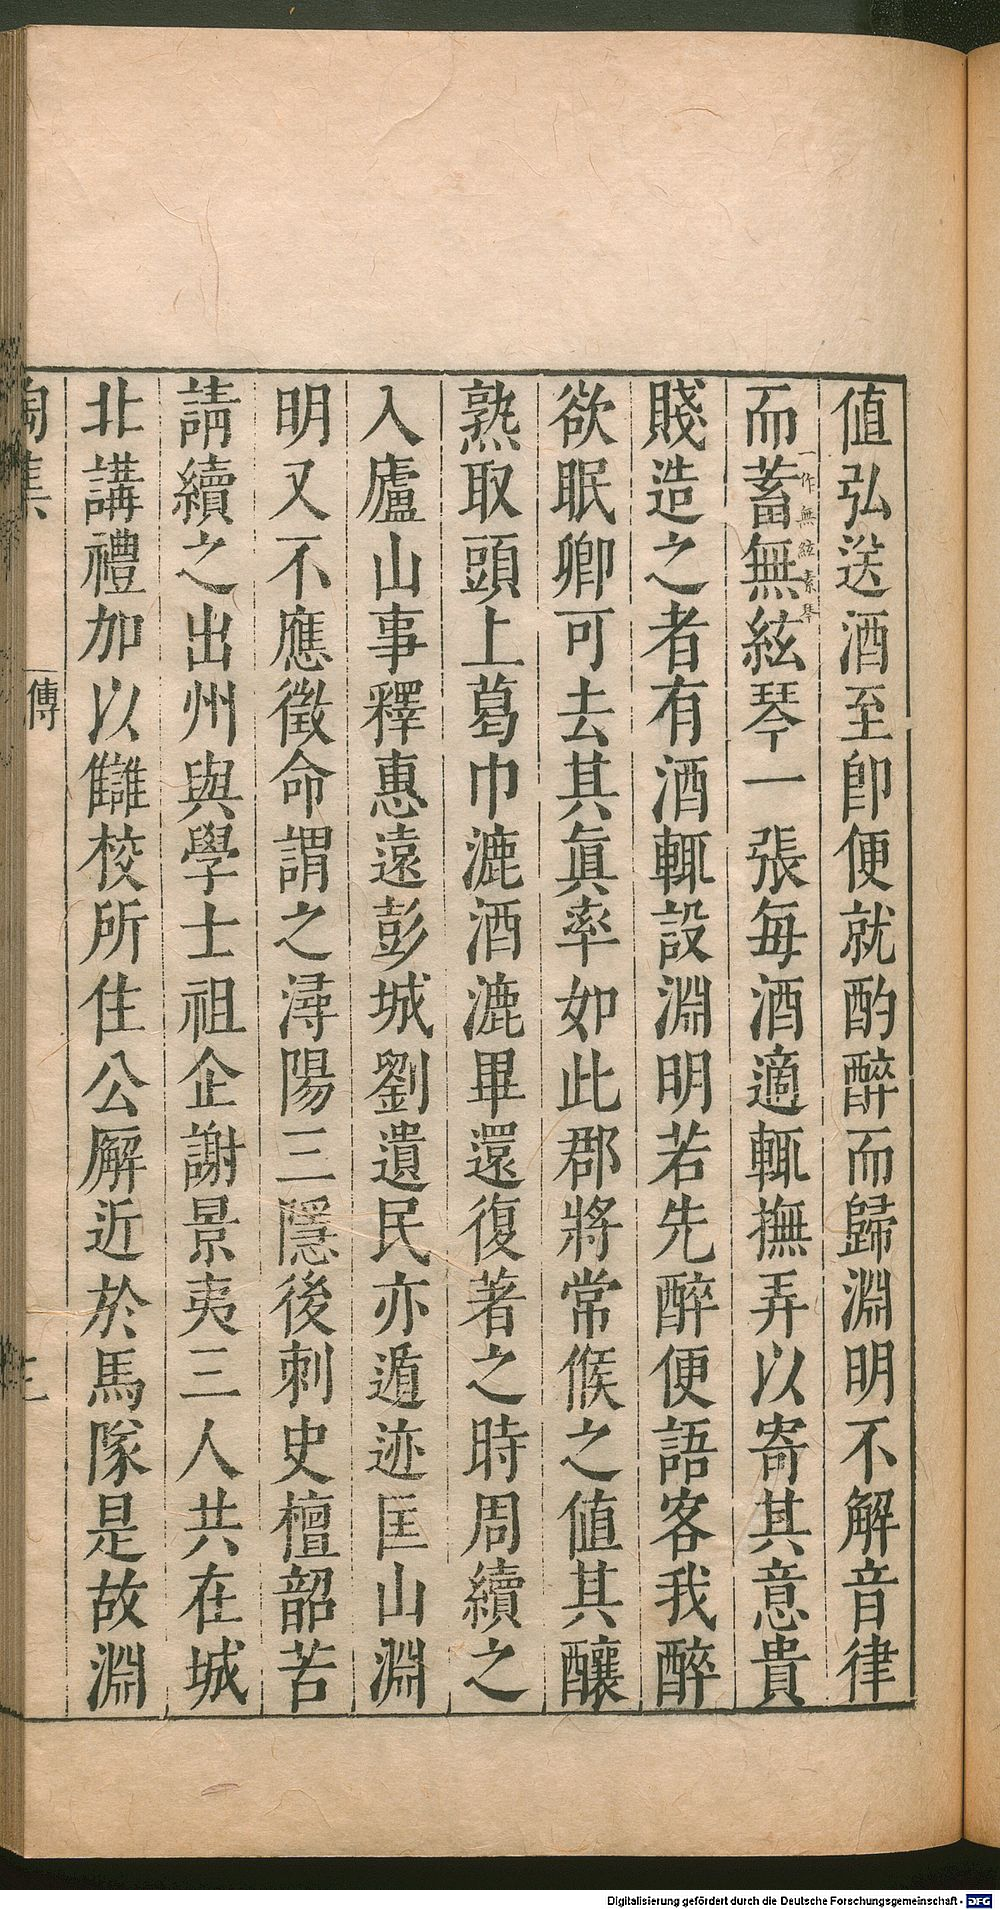 值弘送酒至卽便就酌醉而歸淵明不解音律
而蓄無絃琴一張每酒適輒撫弄以寄其意貴
一作無絃素琴
賤造之者有酒輒設淵明若先醉便語客我醉
欲眠卿可去其眞率如此郡將常候之值其釀
熟取頭上葛巾漉酒漉畢還復著之時周續之
入廬山事釋惠遠彭城劉遺民亦遁迹匡山淵
明又不應徵命謂之潯陽三隱後刺史檀韶苦
請續之出州與學士祖企謝景夷三人共在城
北講禮加以讎校所住公廨近於馬隊是故淵
陶集
傳
三
Digitalisierung gefördert durch die Deutsche Forschungsgemeinschaft - DFG